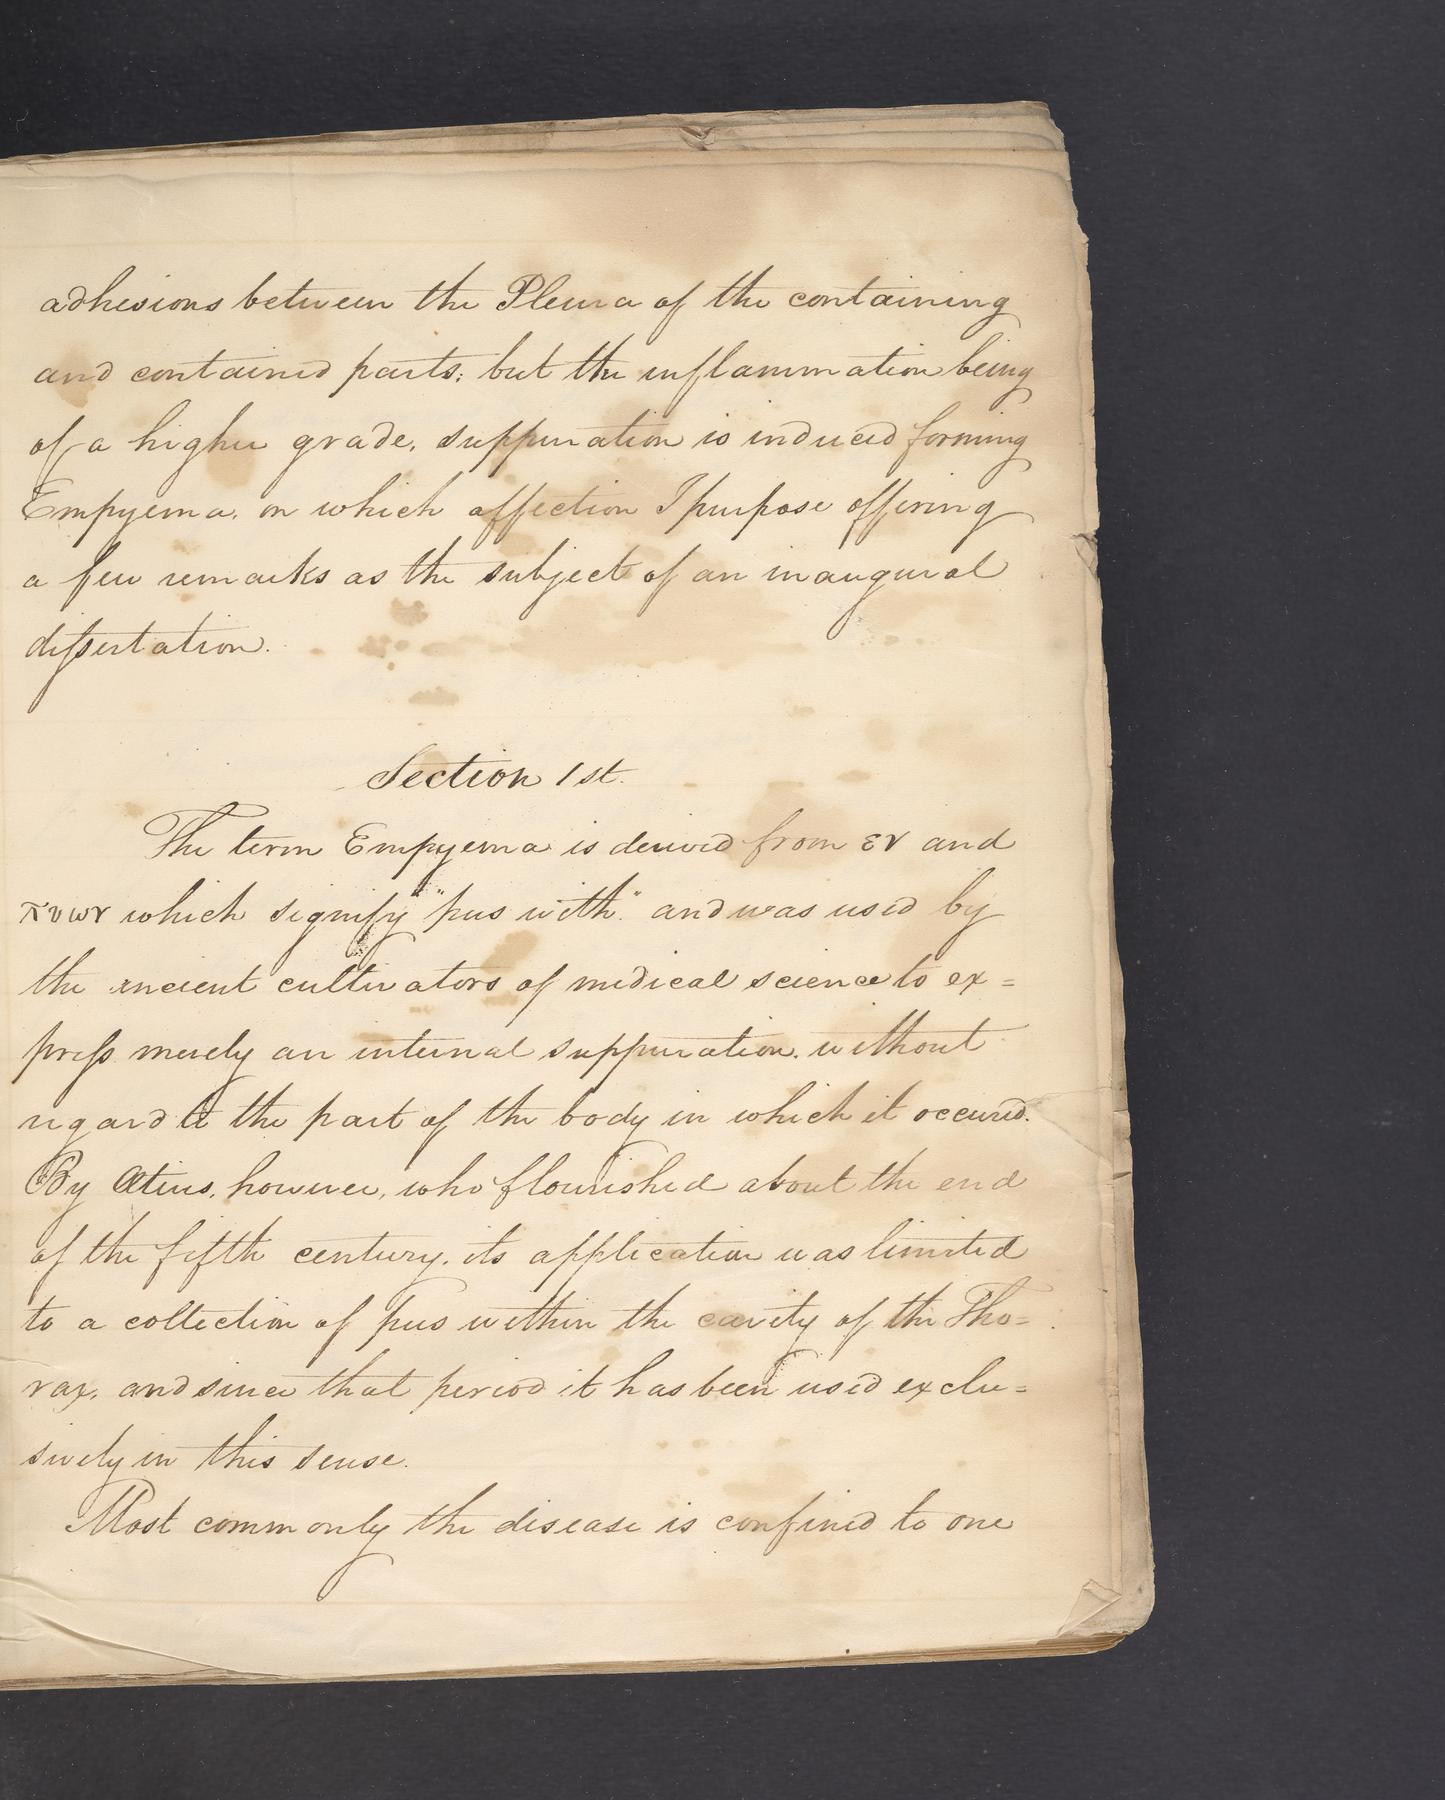 adhesions between the Pleura of the containing
and contained parts; but the inflammation being
of a higher grade, suppuration is induced forming
Empyema, on which affection I purpose offering
a few remarks as the subject of an inaugural
dissertation.
Section 1st.
The term Empyema is derived from εν and
πυων which signify "pus with" and was used by
the ancient cultivators of medical science to ex=
press merely an internal suppuration, without
regard to the part of the body in which it occured.
By Ætius, however, who flourished about the end
of the fifth century, its application was limited
to a collection of pus within the cavity of the Tho=
rax, and since that period it has been used exclu=
sively in this sense.
Most commonly the disease is confined to one